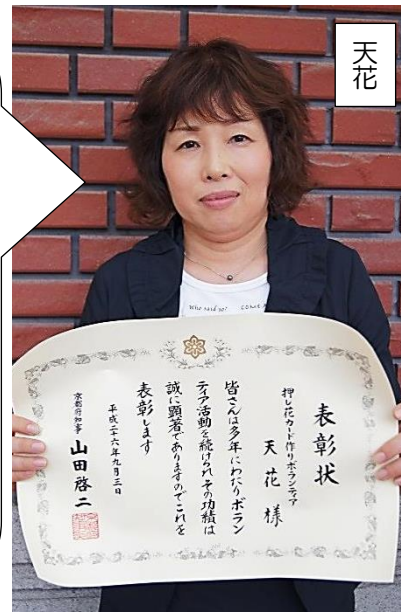 天花
Who said so? COME
表彰状
押し花カード作りボランティア
天花様
皆さんは多年にわたりボラン
ティア活動を続けられその功績は
誠に顕著でありますのでこれを
表彰します
平成二十六年九月三日
京都府知事 山田啓二